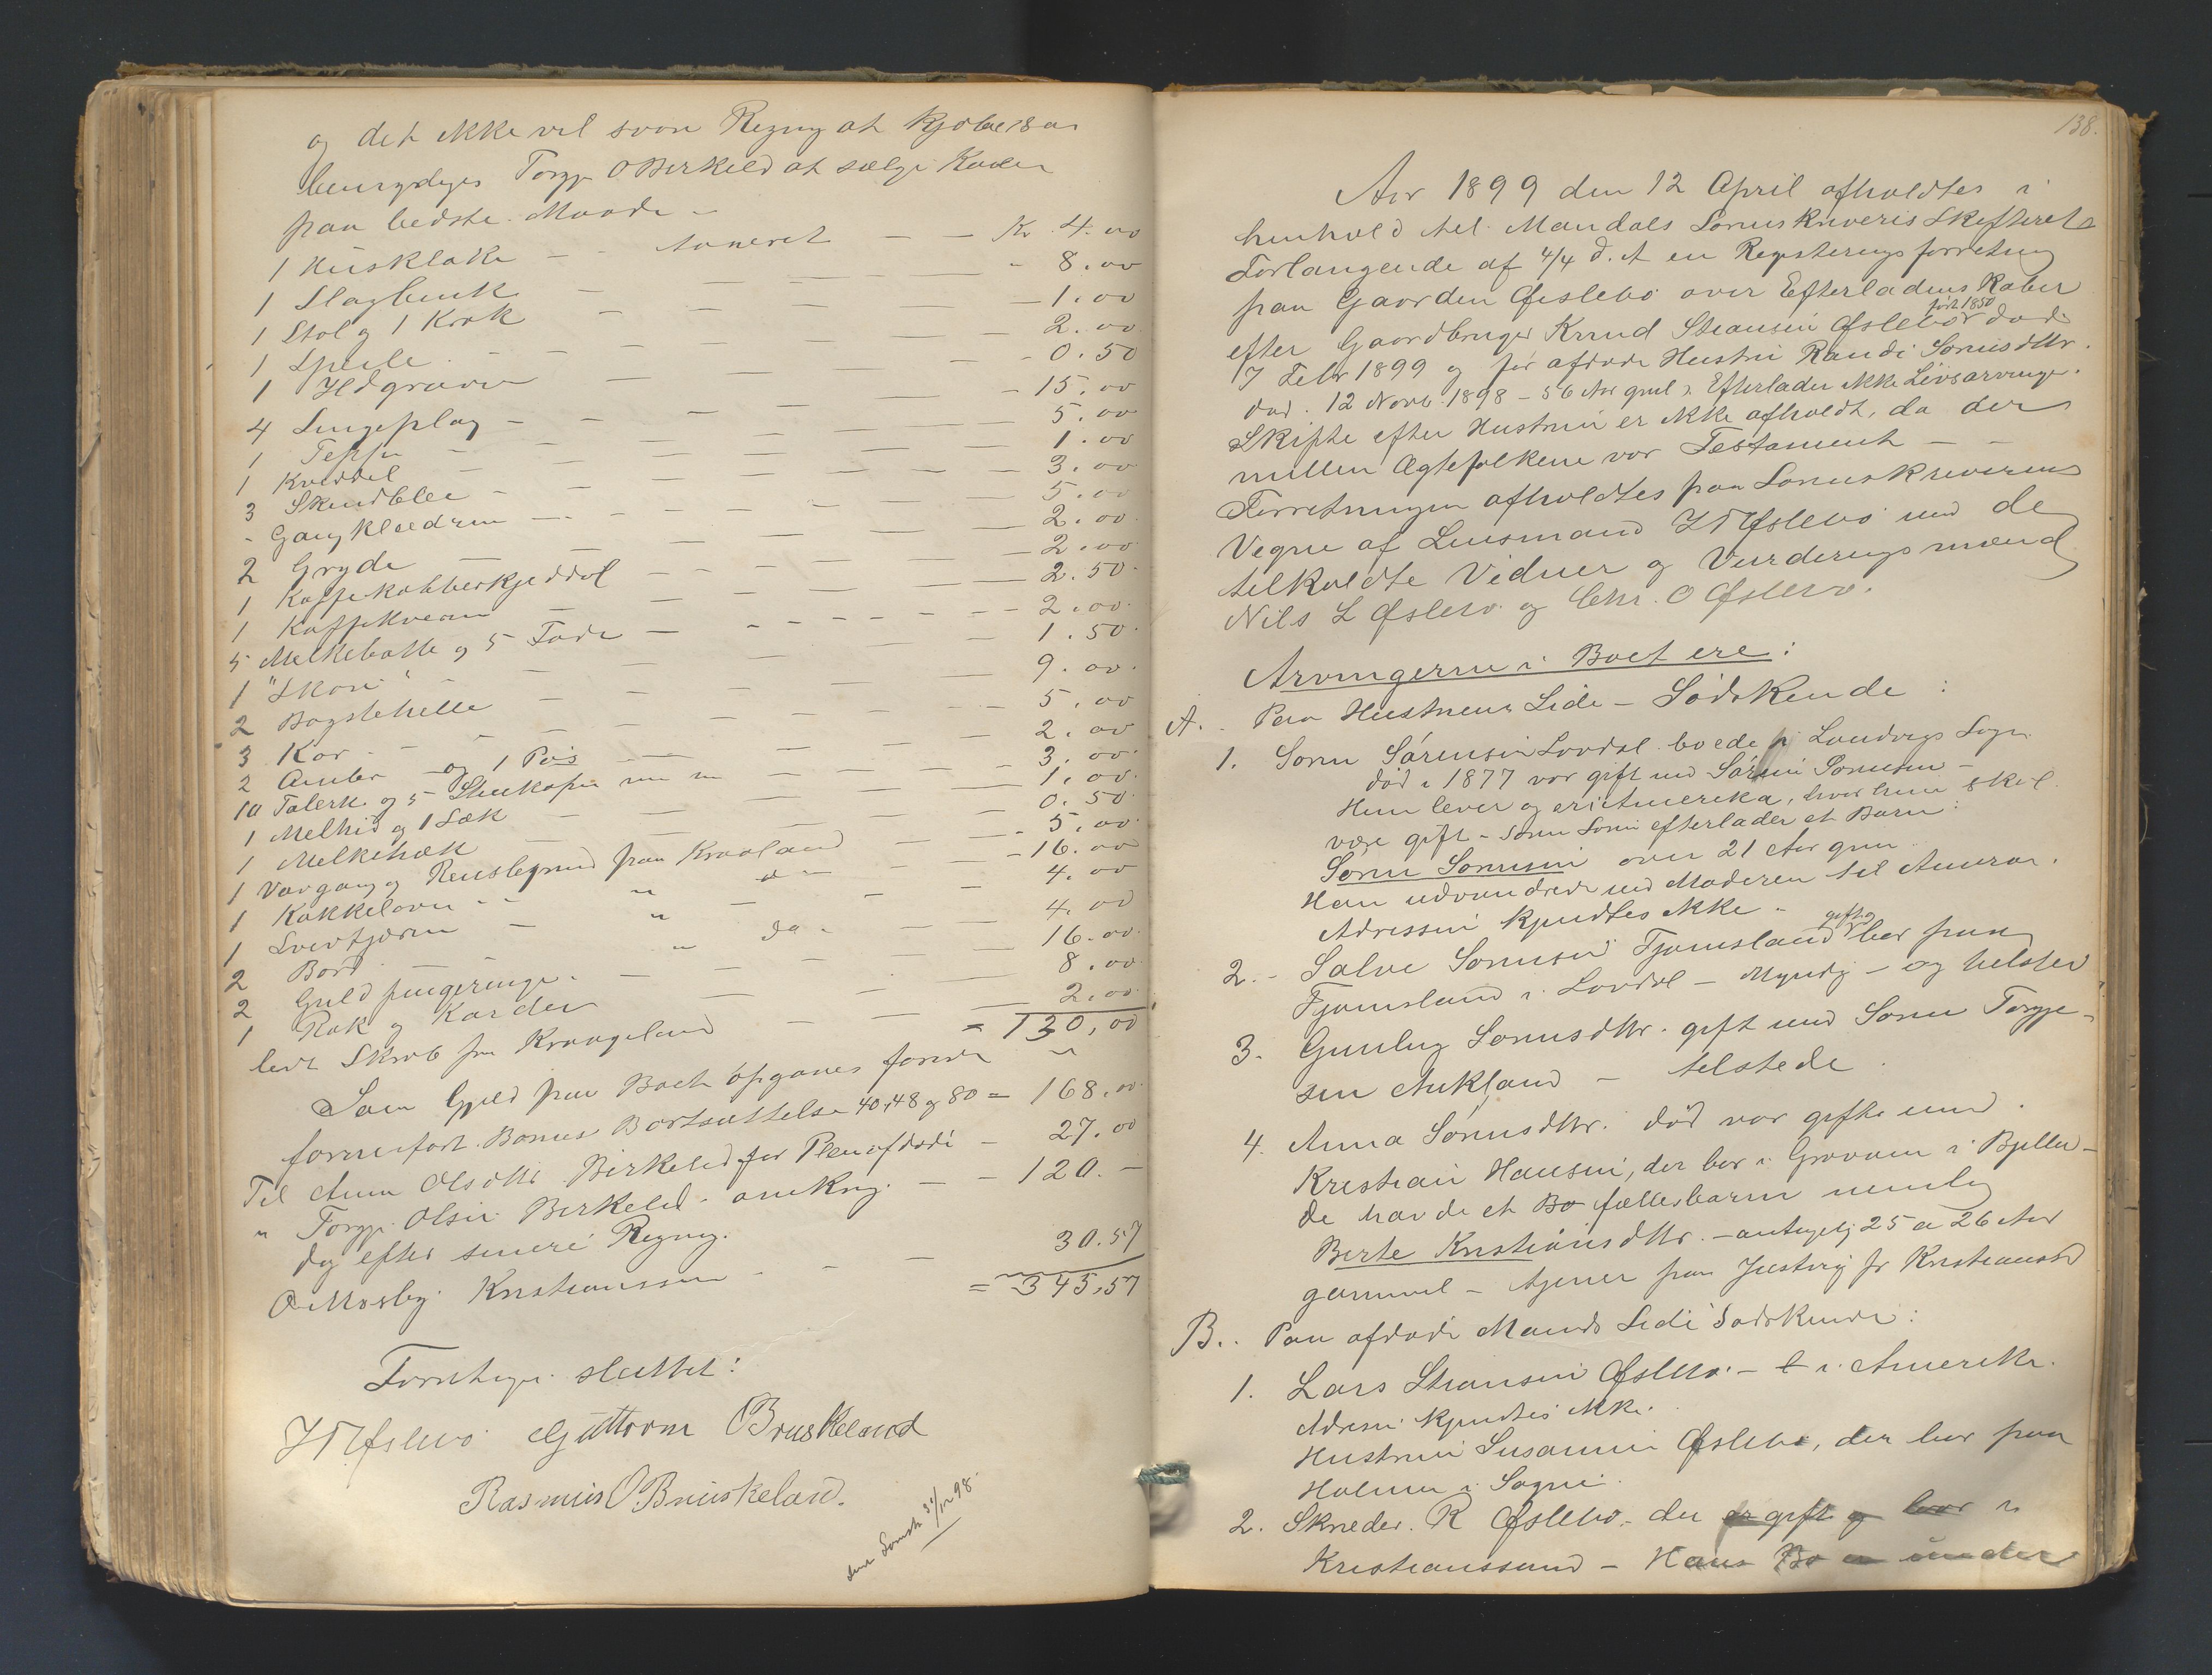 og det ikke vil svare Regning at kjøbe
bemyndiges Torje O Birkeld at sælge
paa bedste Maade -
1 Husklokke - - taxeret - - Kr 4.00
1 Slagbenk - - - - 8.00
1 Stol og 1 Krak - - - 1.00
1 Speile - - - 2.00
1 Ildgraver - - - 0.50
4 Sengeplag - - - 15.00
1 Teppe - - - 5.00
1 Kviddel - - - 1.00
3 Skindblei - - - 3.00
- Gangklædene - - - 5.00
2 Gryder - - - 2.00
1 Kaffekobberkjeddel - - - 2.00
1 Kaffekvern - - - 2.50
5 Melkebøtte og 5 Fade - - - 2.00
1 "Skori" - - - 1.50
2 Bagstehelle - - - 9.00
3 Kar - - - 5.00
2 Amber og 1 Pøs - - - 2.00
10 Talerk. og 5 Stenkopper m m - - - 3.00
1 Melhid og 1 Sæk - - - 1.00
1 Melkehæk - - - 0.50
1 Vævgang og paa Kraaland - - 5.00
1 Kakkelovn - - " do - - 16.00
1 - - " - - 4.00
2 Bord - - " do - - 4.00
2 Guld fingeringe - - - 16.00
1 Rok og Karder - - - 8.00
ledt Skrab fra Kraageland - - 2.00
= 130,00
Som Gjæld paa Boet opgaves foruden
forrenført. Barnets Bortsættelse 40, 48 og 80 = 168.00
Til Anna Olsdtr Birkeled for Pleie afdøde - 27.00
" Torje Olsen Birkeled - omkring - - 120.-
dog efter senere Regning.
O Mosby Kristianssan - - - 30.57
= 345,57
Forretningen sluttet:
JT Øslebø Guttorm OBruskeland
Rasmus OBruskeland.
31/12 98.
138.
Aar 1899 den 12 April afholdtes i
henhold til Mandals Sorenskriveris Skifterets
Forlangende af 4/4 d. A en Registeringsforretning
paa Gaarden Øislebø over Efterladenskaber
født 1850
efter Gaardbruger Knud Stiansen Øslebø død
7 Febr 1899 og før afdøde Hustru Randi Sørensdtr.
død. 12 Novb. 1898 - 56 Aar gml. Efterlader ikke Livsarvinger.
Skifte efter Hustruen er ikke afholdt, da der
mellem Ægtefolkene var Testament - -
Forretningen afholdtes paa Sorenskriverens
Vegne af Lensmand JT Øslebø med de
tilkaldte Vidner og Vurderingsmænd
Nils L Øslebø og Chr. O Øslebø.
Arvingerne i Boet ere:
A. Paa Hustruens Side - Sødskende:
1. Sørn Sørensen Lovdal boede i Laudals Sogn
død i 1877 var gift med Sørine Sørensen -
Hun lever og er i Amerika, hvor hun skal
være gift - Sønn Søren efterlader et Barn:
Søren Sørensen over 21 Aar gml.
Han udvandrede med Moderen til Amerika.
Adressen kjendtes ikke -
2. - Salve Sørensen Fjomsland gift og bor paa
Fjomsland i Lavdal - Myndig - og tilsted
3. Gunlug Sørensdtr. gift med Sørn Torje-
sen Aukland - tilstede.
4. Anna Sørensdtr. død var gift med
Kristian Hansen, der bor i Grovan i Bjelland -
De havde et Bo fællesbarn nemlig
Berte Kristiansdtr. - antagelig 25 a 26 Aar
gammel - tjener paa Justvig pr Kristianssd
B. Paa afdøde Mands Side Sødskende:
1. Lars Stiansen Øslebø - i Amerika.
Adresse kjendtes ikke.
Hustruen Susanne Øslebø, der bor paa
Holmen i Sognet.
2. Skræder. R Øslebø - der er gift og bor i
Kristianssand - Hans Bo er under